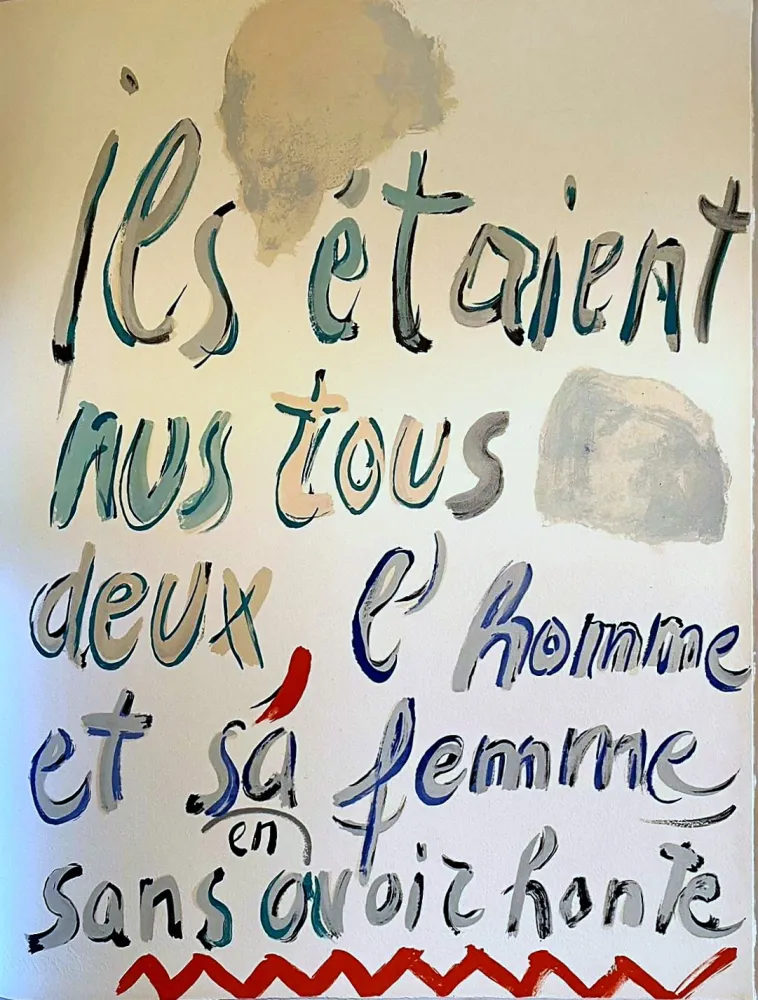 ils étaient
nus tous
deux, l'homme
et sa femme
en
sans avoir honte